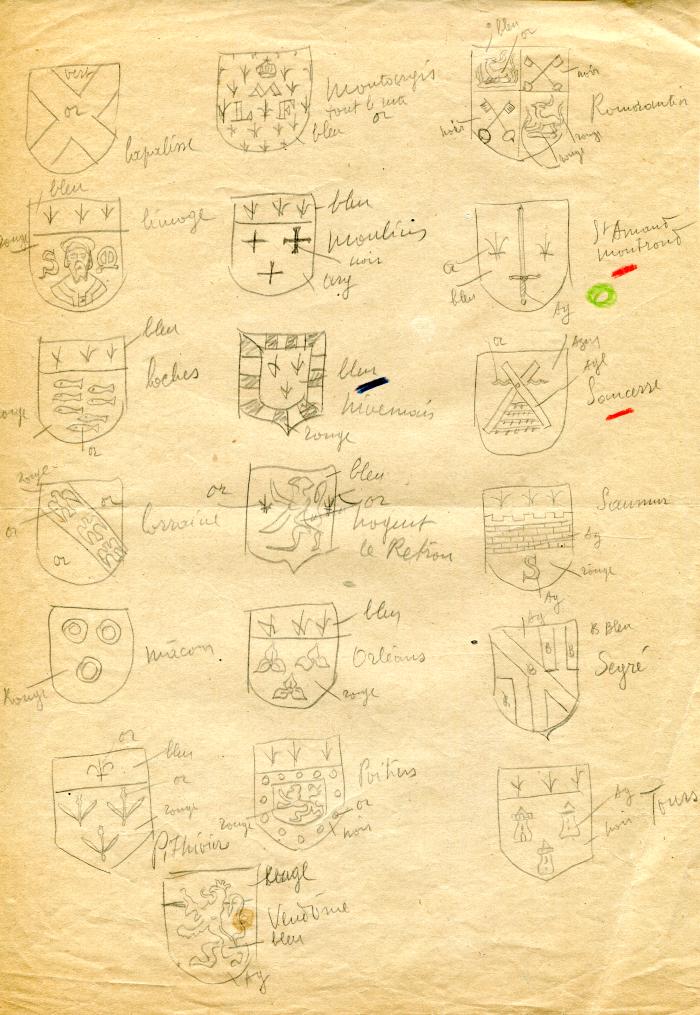 vert
or
Lapalisse
Montargis
tout le ma
or
bleu
L F
bleu
or
noir
Romorantin
noir
rouge
rouge
bleu
rouge
limoge
bleu
Moulins
noir
arg
St Amand
Montrond
bleu
Ag
bleu
loches
rouge
or
bleu
nivernais
rouge
or
Sancerre
rouge
or
or
or
lorraine
or
bleu
or
nogent
le Retrou
Saumur
Ag
S
rouge
Ag
mâcon
Rouge
bleu
Orléans
rouge
Ag
B Bleu
Segré
B
B
B
B
or
bleu
or
rouge
Pithivier
Poitiers
or
noir
rouge
Ag
noir
Tours
Rouge
Vendôme
bleu
Ag